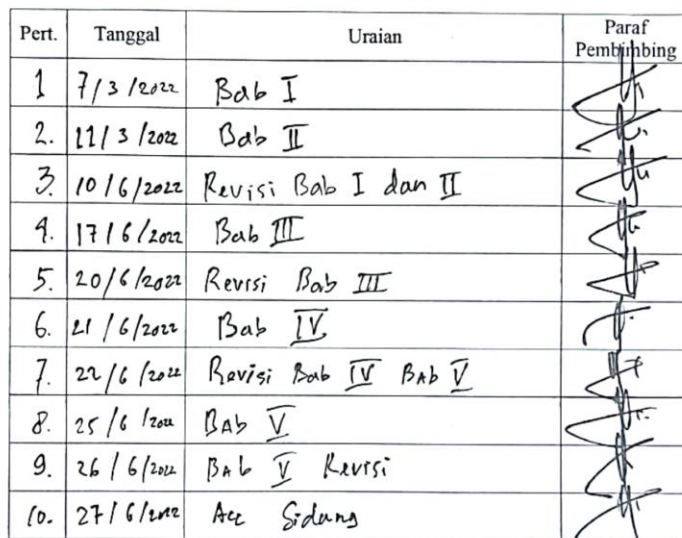 Pert. Tanggal Uraian Paraf Pembimbing
1 7/3/2022 Bab I
2. 11/3/2022 Bab II
3. 10/6/2022 Revisi Bab I dan II
4. 17/6/2022 Bab III
5. 20/6/2022 Revisi Bab III
6. 21/6/2022 Bab IV
7. 22/6/2022 Revisi Bab IV BAb V
8. 25/6/2022 BAb V
9. 26/6/2022 BAb V Revisi
10. 27/6/2022 Acc Sidang